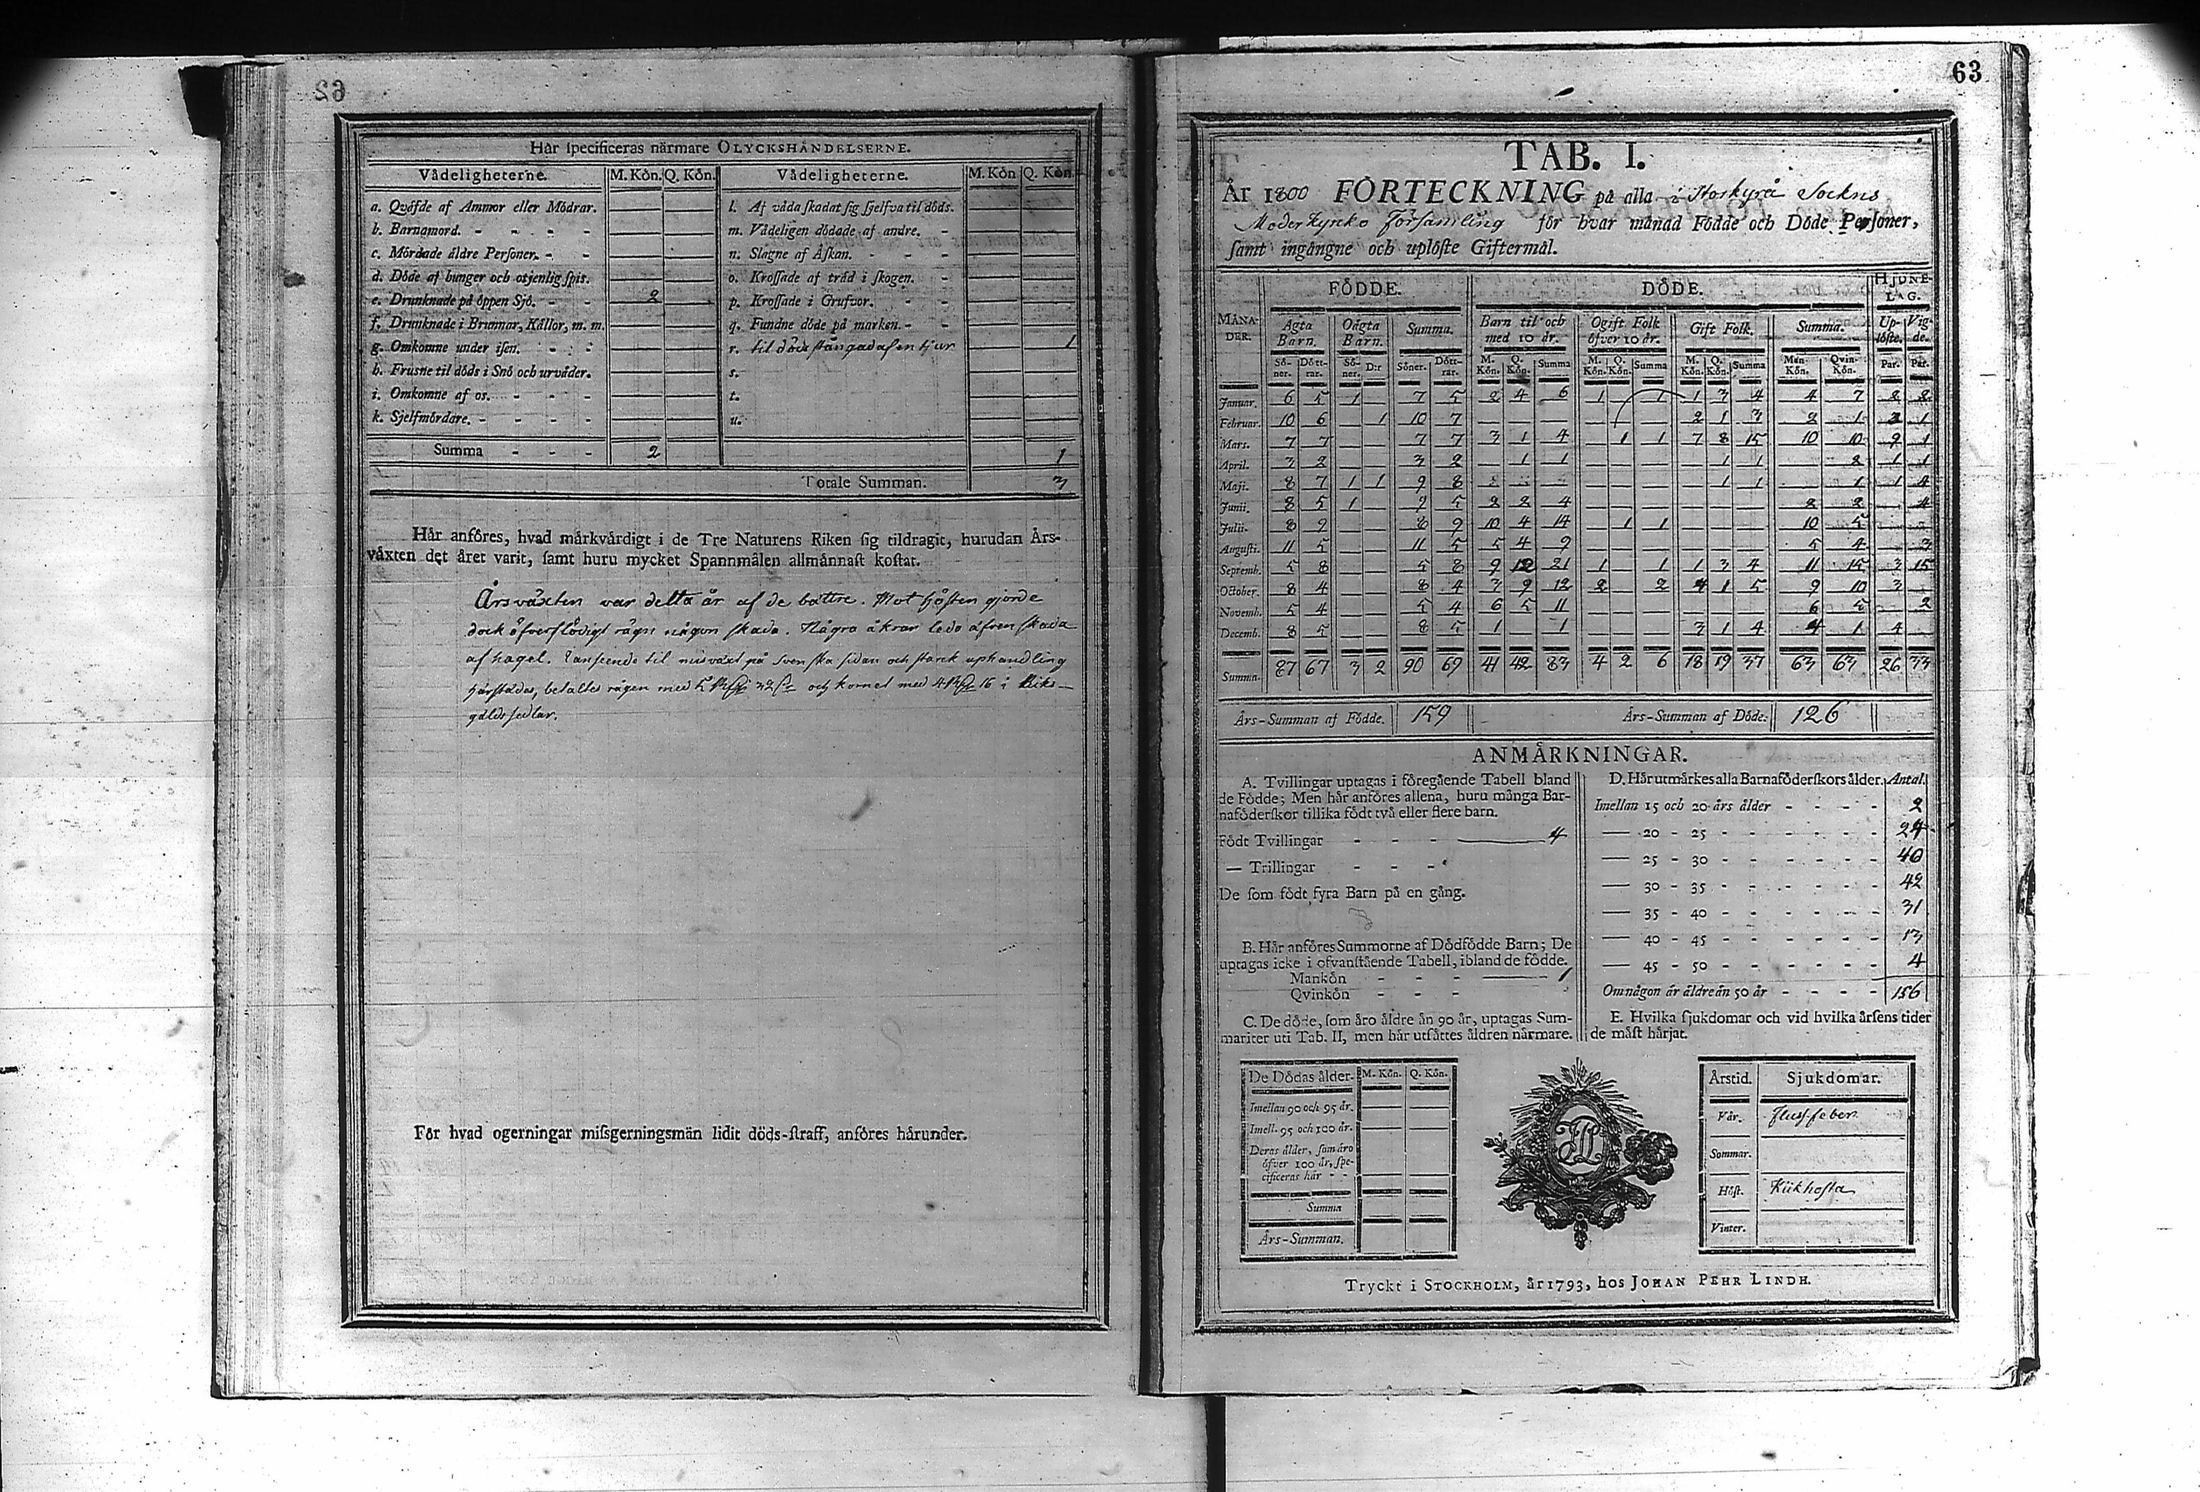 62
Här specificeras närmare OLYCKSHÄNDELSERNE.
Vådeligheterne. M. Kön. Q. Kön. Vådeligheterne. M. Kön Q. Kön.
a. Qväfde af Ammor eller Mödrar. — — l. Af våda skadat sig sjelfva til döds. — —
b. Barnamord. — — m. Vådeligen dödade af andre. — —
c. Mördade äldre Personer. — — n. Slagne af Åskan. — —
d. Döde af hunger och otjenlig spis. — — o. Krossade af träd i skogen. — —
e. Drunknade på öppen Sjö. 2 — p. Krossade i Grufvor. — —
f. Drunknade i Brunnar, Källor, m. m. — — q. Fundne döde på marken. — —
g. Omkomne under isen. — — r. til döds stångad af en tjur — 1
h. Frusne til döds i Snö och urväder. — — s.
i. Omkomne af os. — — t.
k. Sjelfmördare. — — u.
Summa 2 1
Totale Summan. 3
Här anföres, hvad märkvärdigt i de Tre Naturens Riken sig tildragit, hurudan Års-
växten det året varit, samt huru mycket Spannmålen allmännast kostat.
Årsväxten var detta år af de bättre. Mot hösten gjorde
dock öfverflödigt rägn någon skada. Några åkrar ledo äfven skada
af hagel. I anseende til misväxt på Svenska sidan och stark uphandling
härstädes, betaltes rågen med 5 32 och kornet med 4 16 i Riks-
gälds sedlar.
För hvad ogerningar missgerningsmän lidit döds-straff, anföres härunder.
63
TAB. I.
År 1800 FÖRTECKNING på alla i Storkyrå Sockns
Moderkyrko Församling för hvar månad Födde och Döde Personer,
samt ingångne och uplöste Giftermål.
FÖDDE. DÖDE. HJONE-
LAG.
MÅNA-
DER. Ägta
Barn. Oägta
Barn. Summa. Barn til och
med 10 år. Ogift Folk
öfver 10 år. Gift Folk. Summa. Up-
löste. Vig-
de.
Sö-
ner. Dött-
rar. Sö-
ner. D:r Söner. Dött-
rar. M.
Kön. Q.
Kön. Summa M.
Kön. Q.
Kön. Summa M.
Kön. Q.
Kön. Summa Man-
Kön. Qvin-
Kön. Par. Par.
Januar. 6 5 1 — 7 5 2 4 6 1 — 1 1 3 4 4 7 2 2
Februar. 10 6 — 1 10 7 — — — — — — 2 1 3 2 1 2 1
Mars. 7 7 — — 7 7 3 1 4 — 1 1 7 8 15 10 10 9 1
April. 3 2 — — 3 2 — 1 1 — — — — 1 1 — 2 1 1
Maji. 8 7 1 1 9 8 — — — — — — — 1 1 — 1 1 4
Junii. 8 5 1 — 9 5 2 2 4 — — — — — — 2 2 — 4
Julii. 8 9 — — 8 9 10 4 14 — 1 1 — — — 10 5 — —
Augusti. 11 5 — — 11 5 5 4 9 — — — — — — 5 4 — 3
Septemb. 5 8 — — 5 8 9 12 21 1 — 1 1 3 4 11 15 3 15
October. 8 4 — — 8 4 3 9 12 2 — 2 4 1 5 9 10 3 —
Novemb. 5 4 — — 5 4 6 5 11 — — — — — — 6 5 — 2
Decemb. 8 5 — — 8 5 1 — 1 — — — 3 1 4 4 1 4 —
Summa. 87 67 3 2 90 69 41 42 83 4 2 6 18 19 37 63 63 26 33
Års-Summan af Födde. 159 Års-Summan af Döde. 126
ANMÄRKNINGAR.
A. Tvillingar uptagas i föregående Tabell bland
de Födde; Men här anföres allena, huru många Bar-
naföderskor tillika födt två eller flere barn.
Födt Tvillingar 4
— Trillingar
De som födt fyra Barn på en gång.
B. Här anföres Summorne af Dödfödde Barn; De
uptagas icke i ofvanstående Tabell, ibland de födde.
Mankön 1
Qvinkön
C. De döde, som äro äldre än 90 år, uptagas Sum-
mariter uti Tab. II, men här utsättes åldren närmare.
D. Här utmärkes alla Barnaföderskors ålder. Antal.
Imellan 15 och 20 års ålder 2
— 20 - 25 24
— 25 - 30 40
— 30 - 35 42
— 35 - 40 31
— 40 - 45 13
— 45 - 50 4
Om någon är äldre än 50 år 156
E. Hvilka sjukdomar och vid hvilka årsens tider
de mäst härjat.
De Dödas ålder. M. Kön. Q. Kön.
Imellan 90 och 95 år. — —
Imell. 95 och 100 år. — —
Deras ålder, som äro
öfver 100 år, spe-
cificeras här - -
Summa
Års-Summan.
Årstid. Sjukdomar.
Vår. fluss-feber.
Sommar.
Höst. Kikhosta
Vinter.
Tryckt i STOCKHOLM, år 1793, hos JOHAN PEHR LINDH.